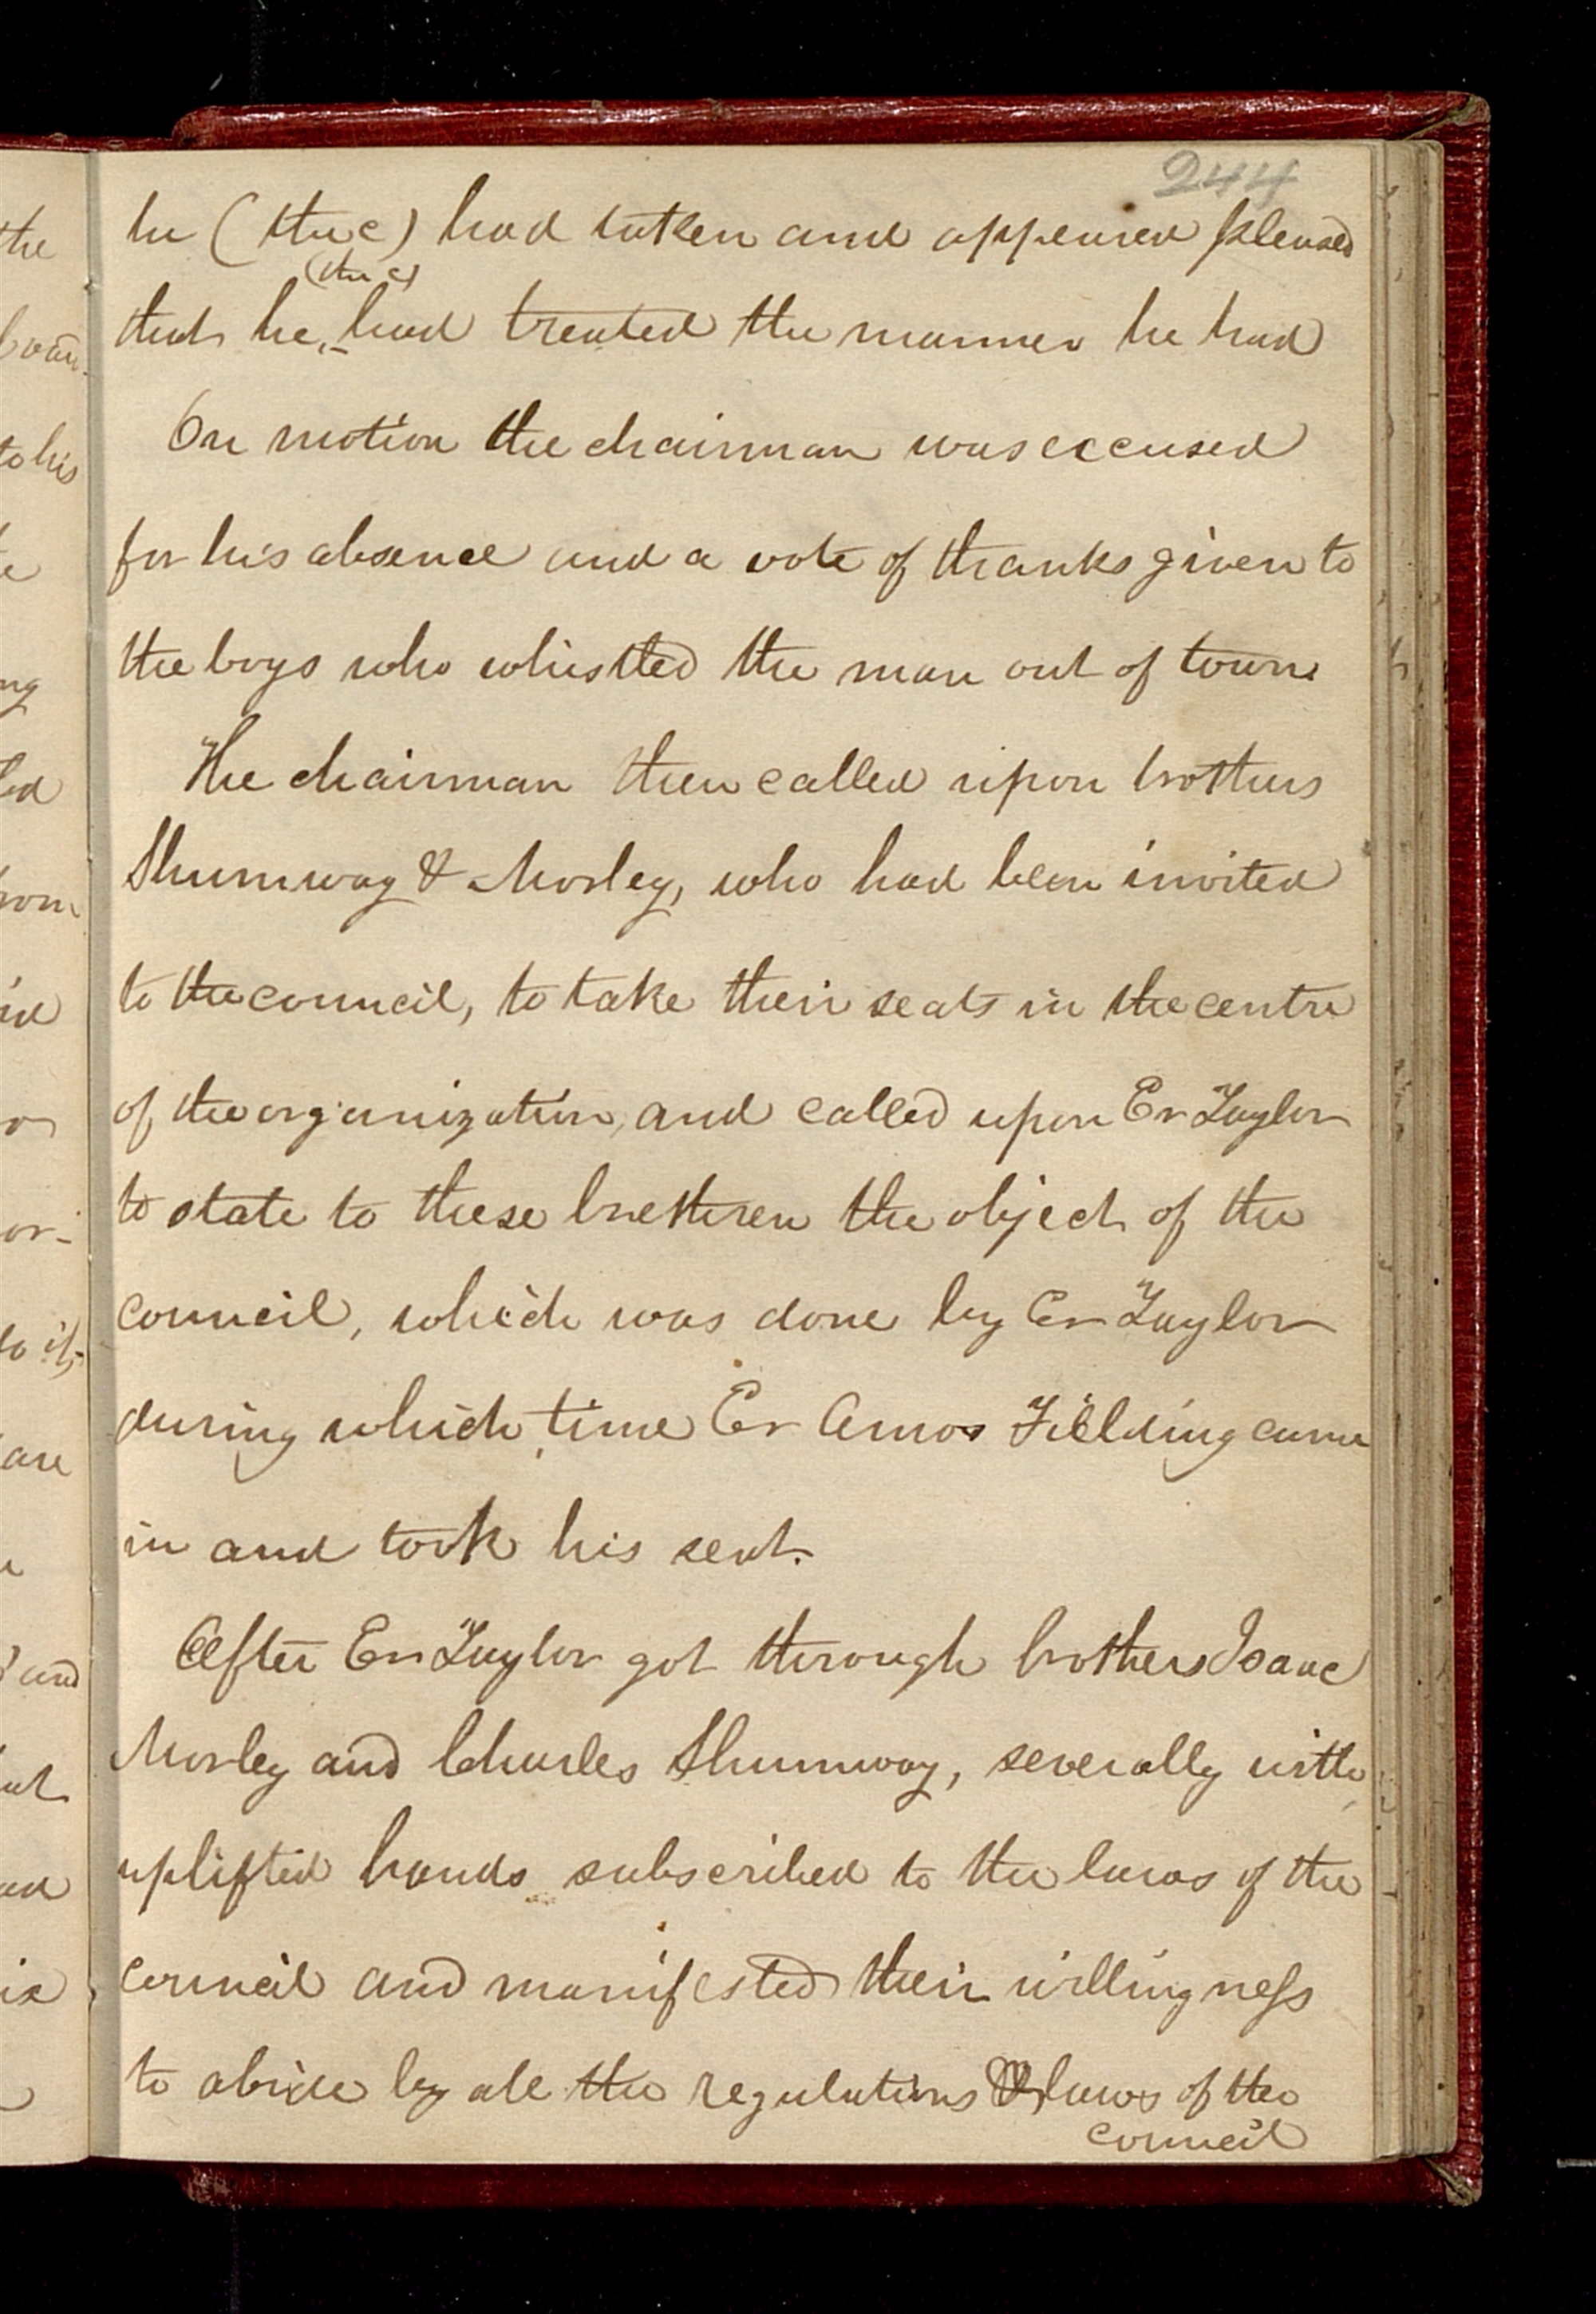 244
he (the c) had taken and appeared pleased
(the c)
that he, had treated the manner he had
On motion the chairman was excused
for his absence and a vote of thanks given to
the boys who whistled the man out of town
The chairman then called upon brothers
Shumway & Morley, who had been invited
to the council, to take their seats in the centre
of the organization, and called upon Er Taylor
to state to these brethren the object of the
council, which was done by Er Taylor
during which time Er Amos Fielding came
in and took his seat.
After Er Taylor got through brothers Isaac
Morley and Charles Shumway, severally with
uplifted hands subscribed to the laws of the
council and manifested their willingness
to abide by all the regulations & laws of the
council
the
to his
ng
led
or-
do it,
are
and